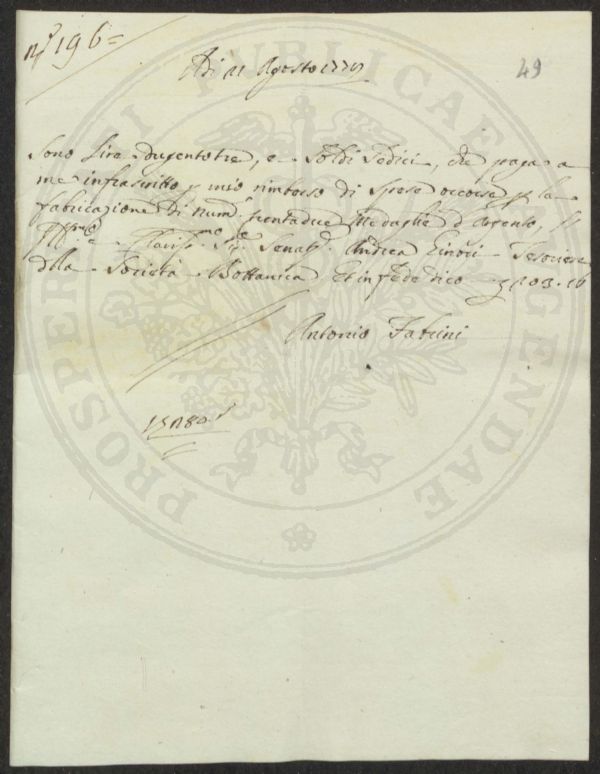 N.º 196=
49
Adi 21 Agosto
Sono Lire dugentotre, e Soldi sedici, che paga a
me infrascritto p mio rimborso di Spese occorse p la
fabricazione di num.º trentadue Medaglie d'Argento,
Sig. Senat.e Andrea Ginori Tesoriere
della Società Bottanica et in fede dico 203.16
Antonio Fabrini
PROSPERITATI PUBLICAE AUGENDAE